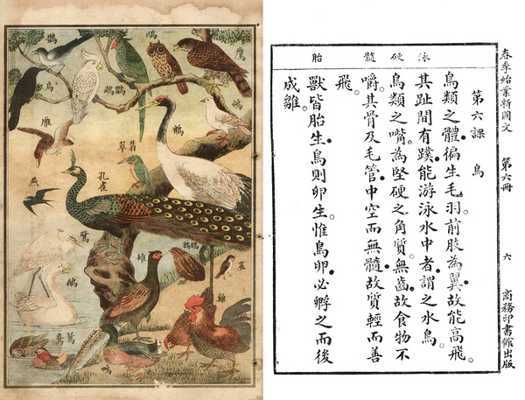 春季始業新國文 第六冊 六 商務印書館出版
泳 硬 髓 胎
第六課 鳥
鳥類之體。徧生毛羽。前肢為翼。故能高飛。
其趾間有蹼能游泳水中者。謂之水鳥。
鳥類之嘴。為堅硬之角質。無齒。故食物不
嚼。其骨及毛管。中空而無髓。故質輕而善
飛。
獸皆胎生。鳥則卵生。惟鳥卵必孵之而後
成雛。
鷹
鵲
鸚鵡
鴿
烏
雁
鶴
翡翠
孔雀
燕
雉
雀
雞
鴛鴦